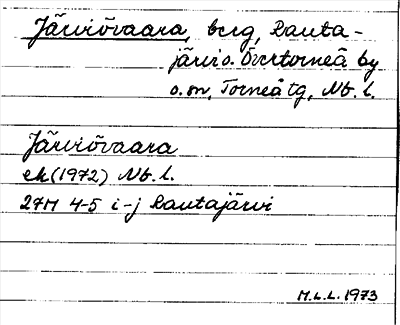 Järviövaara, berg, Rauta-
järvi o. Övertorneå by
o. sn, Torneå tg, Nb. l.
Järviövaara
ek (1972) Nb. l.
27M 4-5 i-j Rautajärvi
M.L.L. 1973